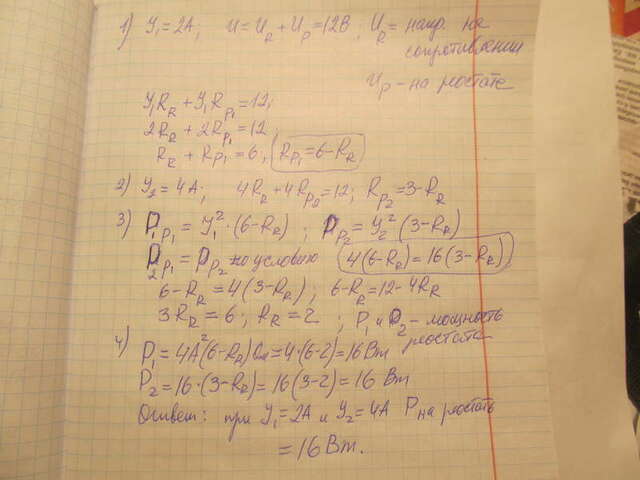 1) У₁=2А; U=U_R+U_р=12В; U_R= напр. на
сопротивлении
U_р - на реостате
У₁R_R+У₁R_р₁=12,
2R_R+2R_р₁=12,
R_R+R_р₁=6; R_р₁=6-R_R
2) У₂=4А; 4R_R+4R_р₂=12; R_р₂=3-R_R
3) P_р₁=У₁²·(6-R_R); P_р₂=У₂²(3-R_R)
P_р₁=P_р₂ по условию 4(6-R_R)=16(3-R_R)
6-R_R=4(3-R_R); 6-R_R=12-4R_R
3R_R=6; R_R=2; P₁ и P₂ - мощность
реостата
4) P₁=4А²(6-R_R)Ом=4·(6-2)=16Вт
P₂=16·(3-R_R)=16(3-2)=16Вт
Ответ: при У₁=2А и У₂=4А P на реостате
=16Вт.